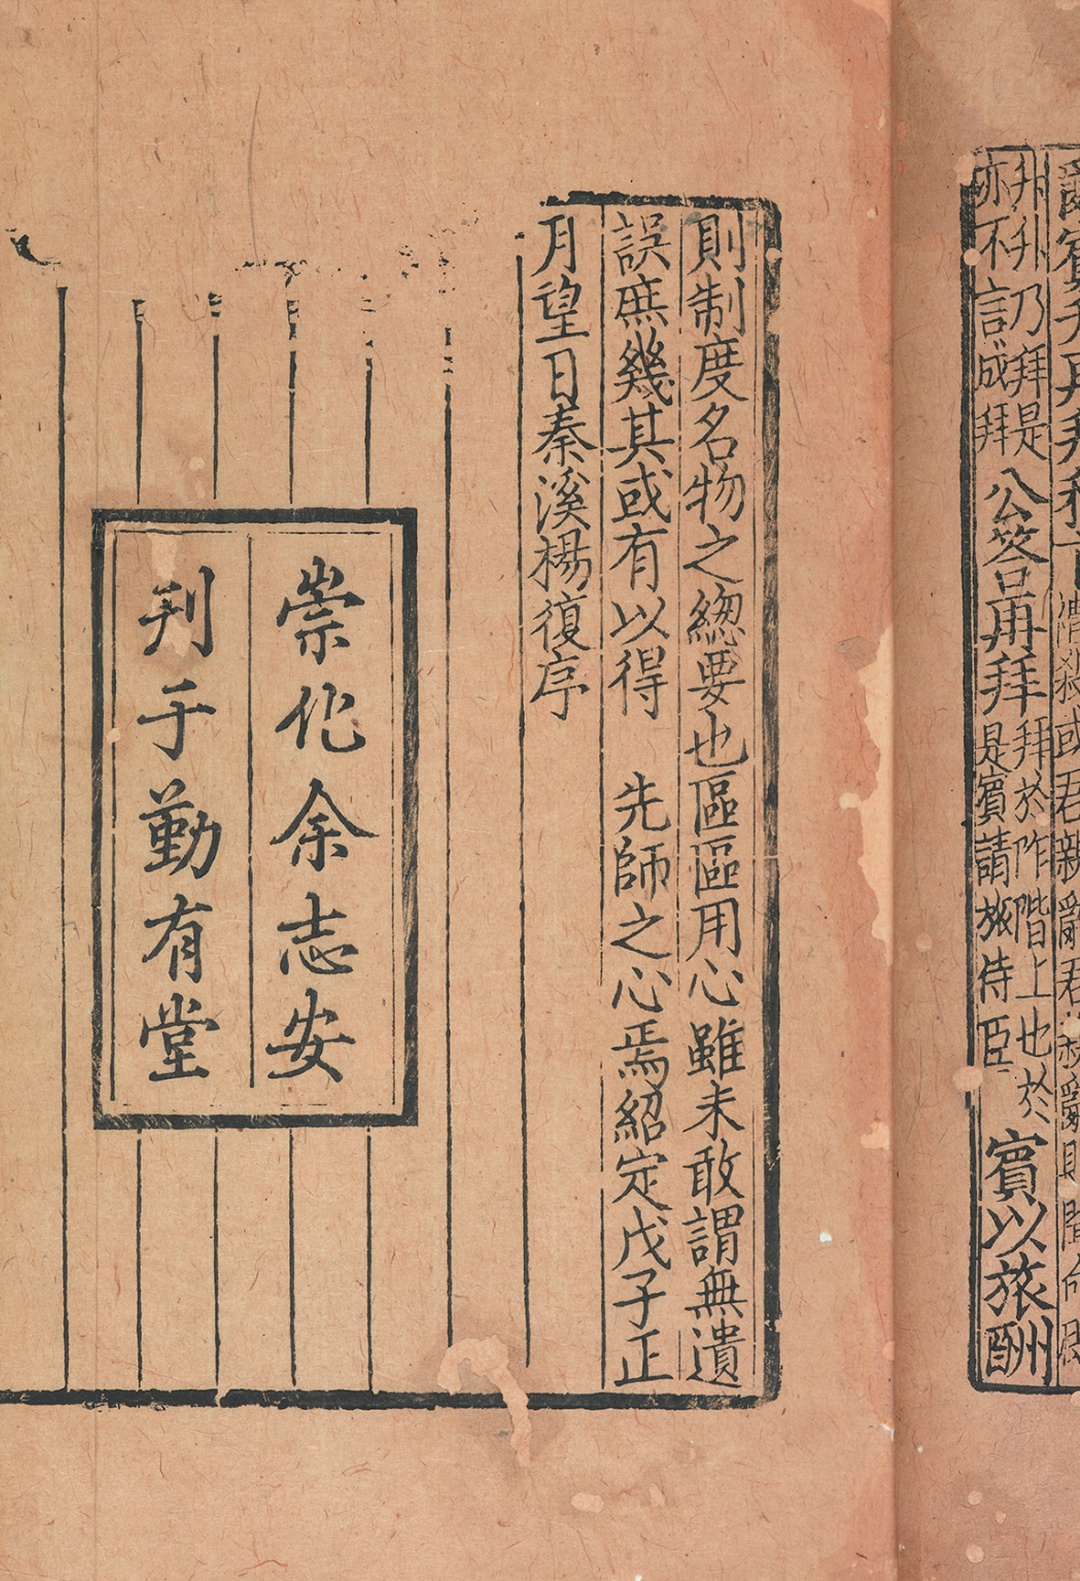 升升乃拜是
亦不言成拜
公荅再拜
拜於阼階上也於
是賓請旅侍臣
賓以旅酬
則制度名物之緫要也區區用心雖未敢謂無遺
誤庶幾其或有以得　先師之心焉紹定戊子正
月望日秦溪楊復序
崇化余志安
刊于勤有堂